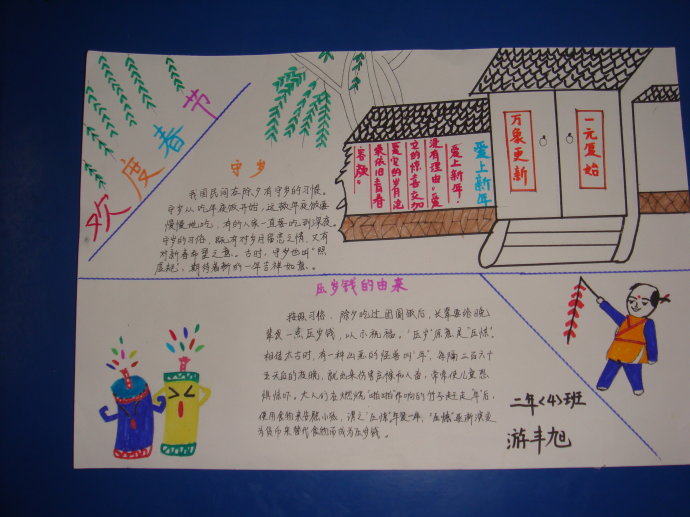 欢度春节
守岁
我国民间在除夕有守岁的习惯。
守岁从吃年夜饭开始，这顿年夜饭要
慢慢地吃，有的人家一直要吃到深夜。
守岁的习俗，既有对岁月留恋之情，又有
对新春希望之意。古时，守岁也叫“照
虚耗”，期待着新的一年吉祥如意。
爱上新年
爱上新年，
没有理由。爱
它的惊喜交加
爱它的岁月流
依旧青春
容颜。
万象更新
一元复始
压岁钱的由来
按照习俗，除夕吃过团圆饭后，长辈要给晚
辈发一点压岁钱，以示祝福。“压岁”原意是“压惊”。
相传太古时，有一种凶恶的怪兽叫“年”，每隔三百六十
五天后的夜晚，就出来伤害
大人们在燃烧“啪啪”作响的竹子赶走“年”后，
使用食物来安慰小孩，谓之“压惊”。年复一年，“压惊”逐渐演变
为货币来替代食物而成为压岁钱。
二年〈4〉班
游丰旭